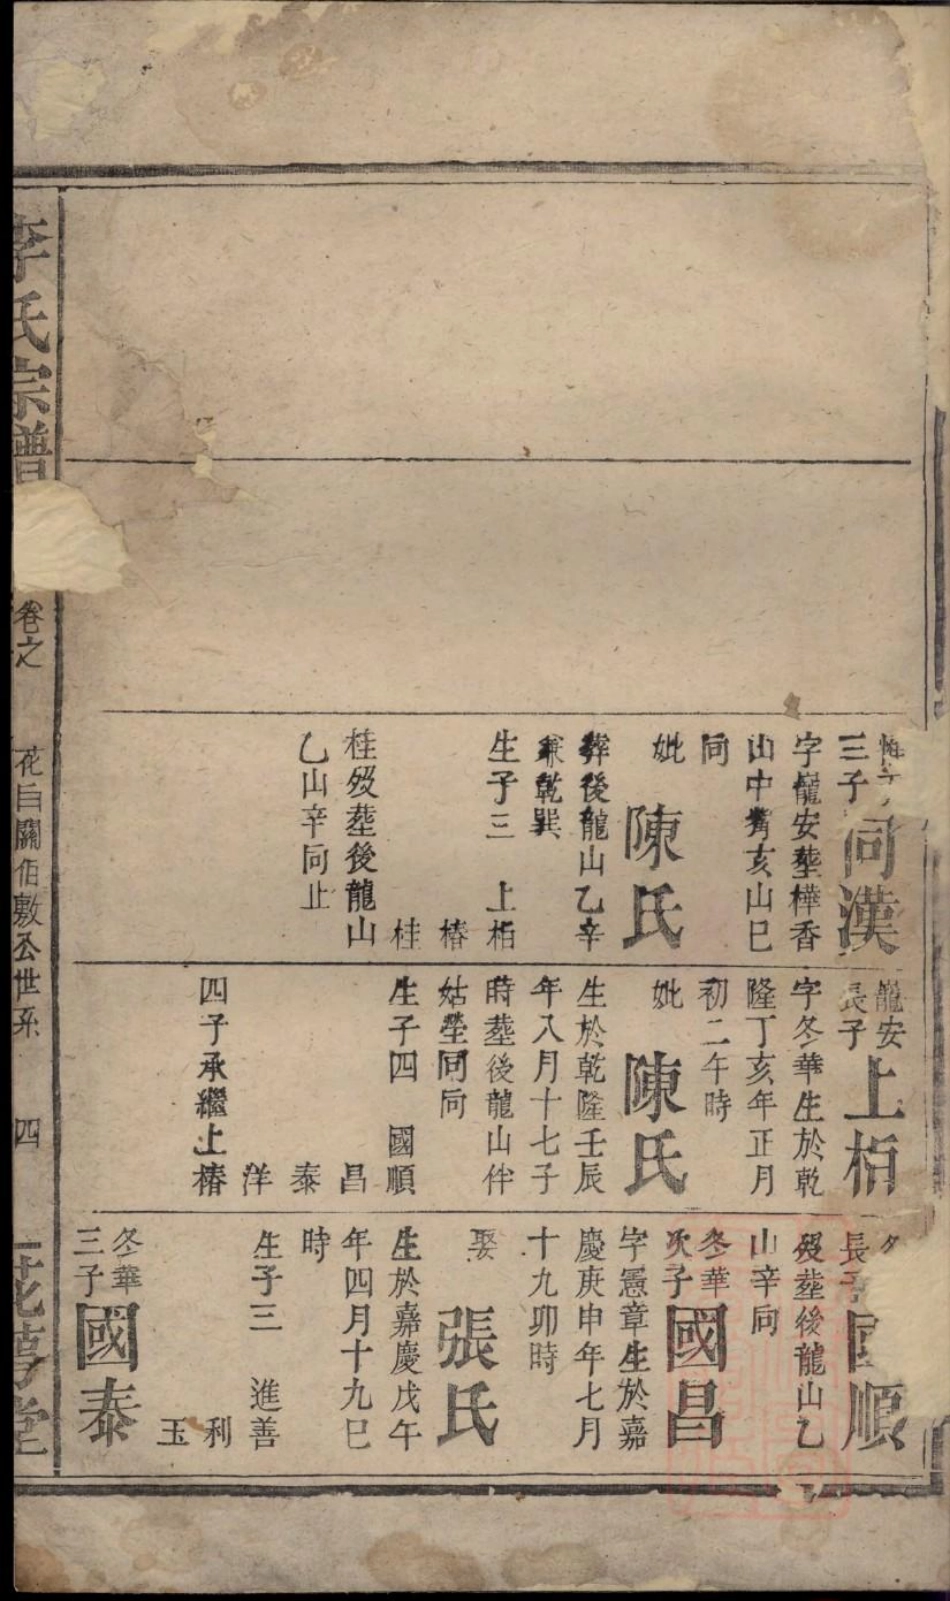 三子 同漢
字巃安塟樺香
山中嘴亥山巳
同
妣 陳氏
葬後龍山乙辛
兼乾巽
生子三 上栢
椿
桂
桂歿塟後龍山
乙山辛向止
巃安
長子 上栢
字冬華生於乾
隆丁亥年正月
初二午時
妣 陳氏
生於乾隆壬辰
年八月十七子
時塟後龍山伴
姑塋同向
生子四 國順
昌
泰
洋
四子承繼上椿
長子 國順
歿塟後龍山乙
山辛向
冬華
次子 國昌
字憲章生於嘉
慶庚申年七月
十九卯時
娶 張氏
生於嘉慶戊午
年四月十九巳
時
生子三 進善
利
玉
冬華
三子 國泰
李氏宗譜
卷之
花白關伯敷公世系
四
花萼堂